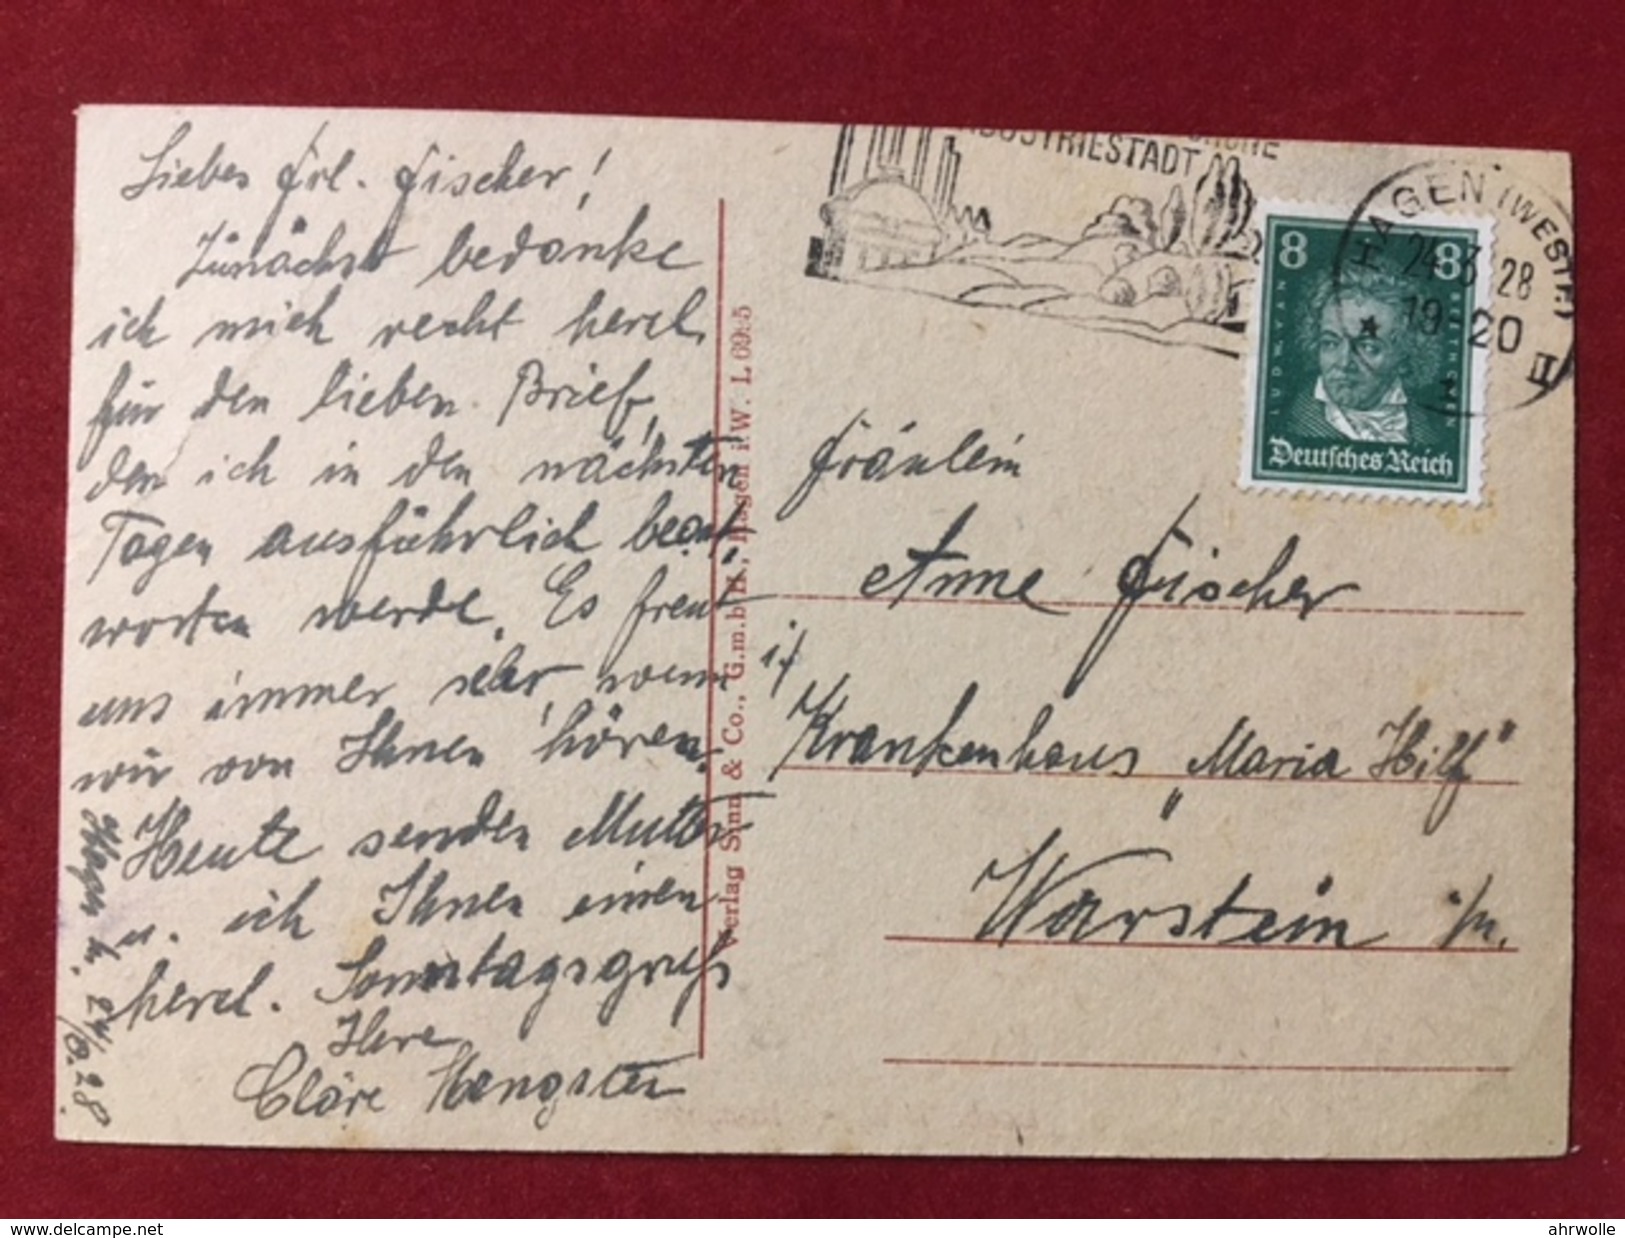 Liebes Frl. Fischer!
Zunächst bedanke
ich mich recht herzl.
für den lieben Brief,
den ich in den nächsten
Tagen ausführlich beant-
worten werde. Es freut
uns immer sehr, wenn
wir von Ihnen hören.
Heute senden Mutter
u. ich Ihnen einen
herzl. Sonntagsgruß
Ihre
Cläre Hengsten
Verlag Sinn & Co., G.m.b.H., Hagen i. W. L 69
INDUSTRIESTADT
HAGEN (WESTF.)
24 3 28
19 20
II
8 8
LUDW. VAN BEETHOVEN
Deutsches Reich
Fräulein
Anne Fischer
Krankenhaus „Maria Hilf"
Warstein i/W.
delcampe.net
ahrwolle